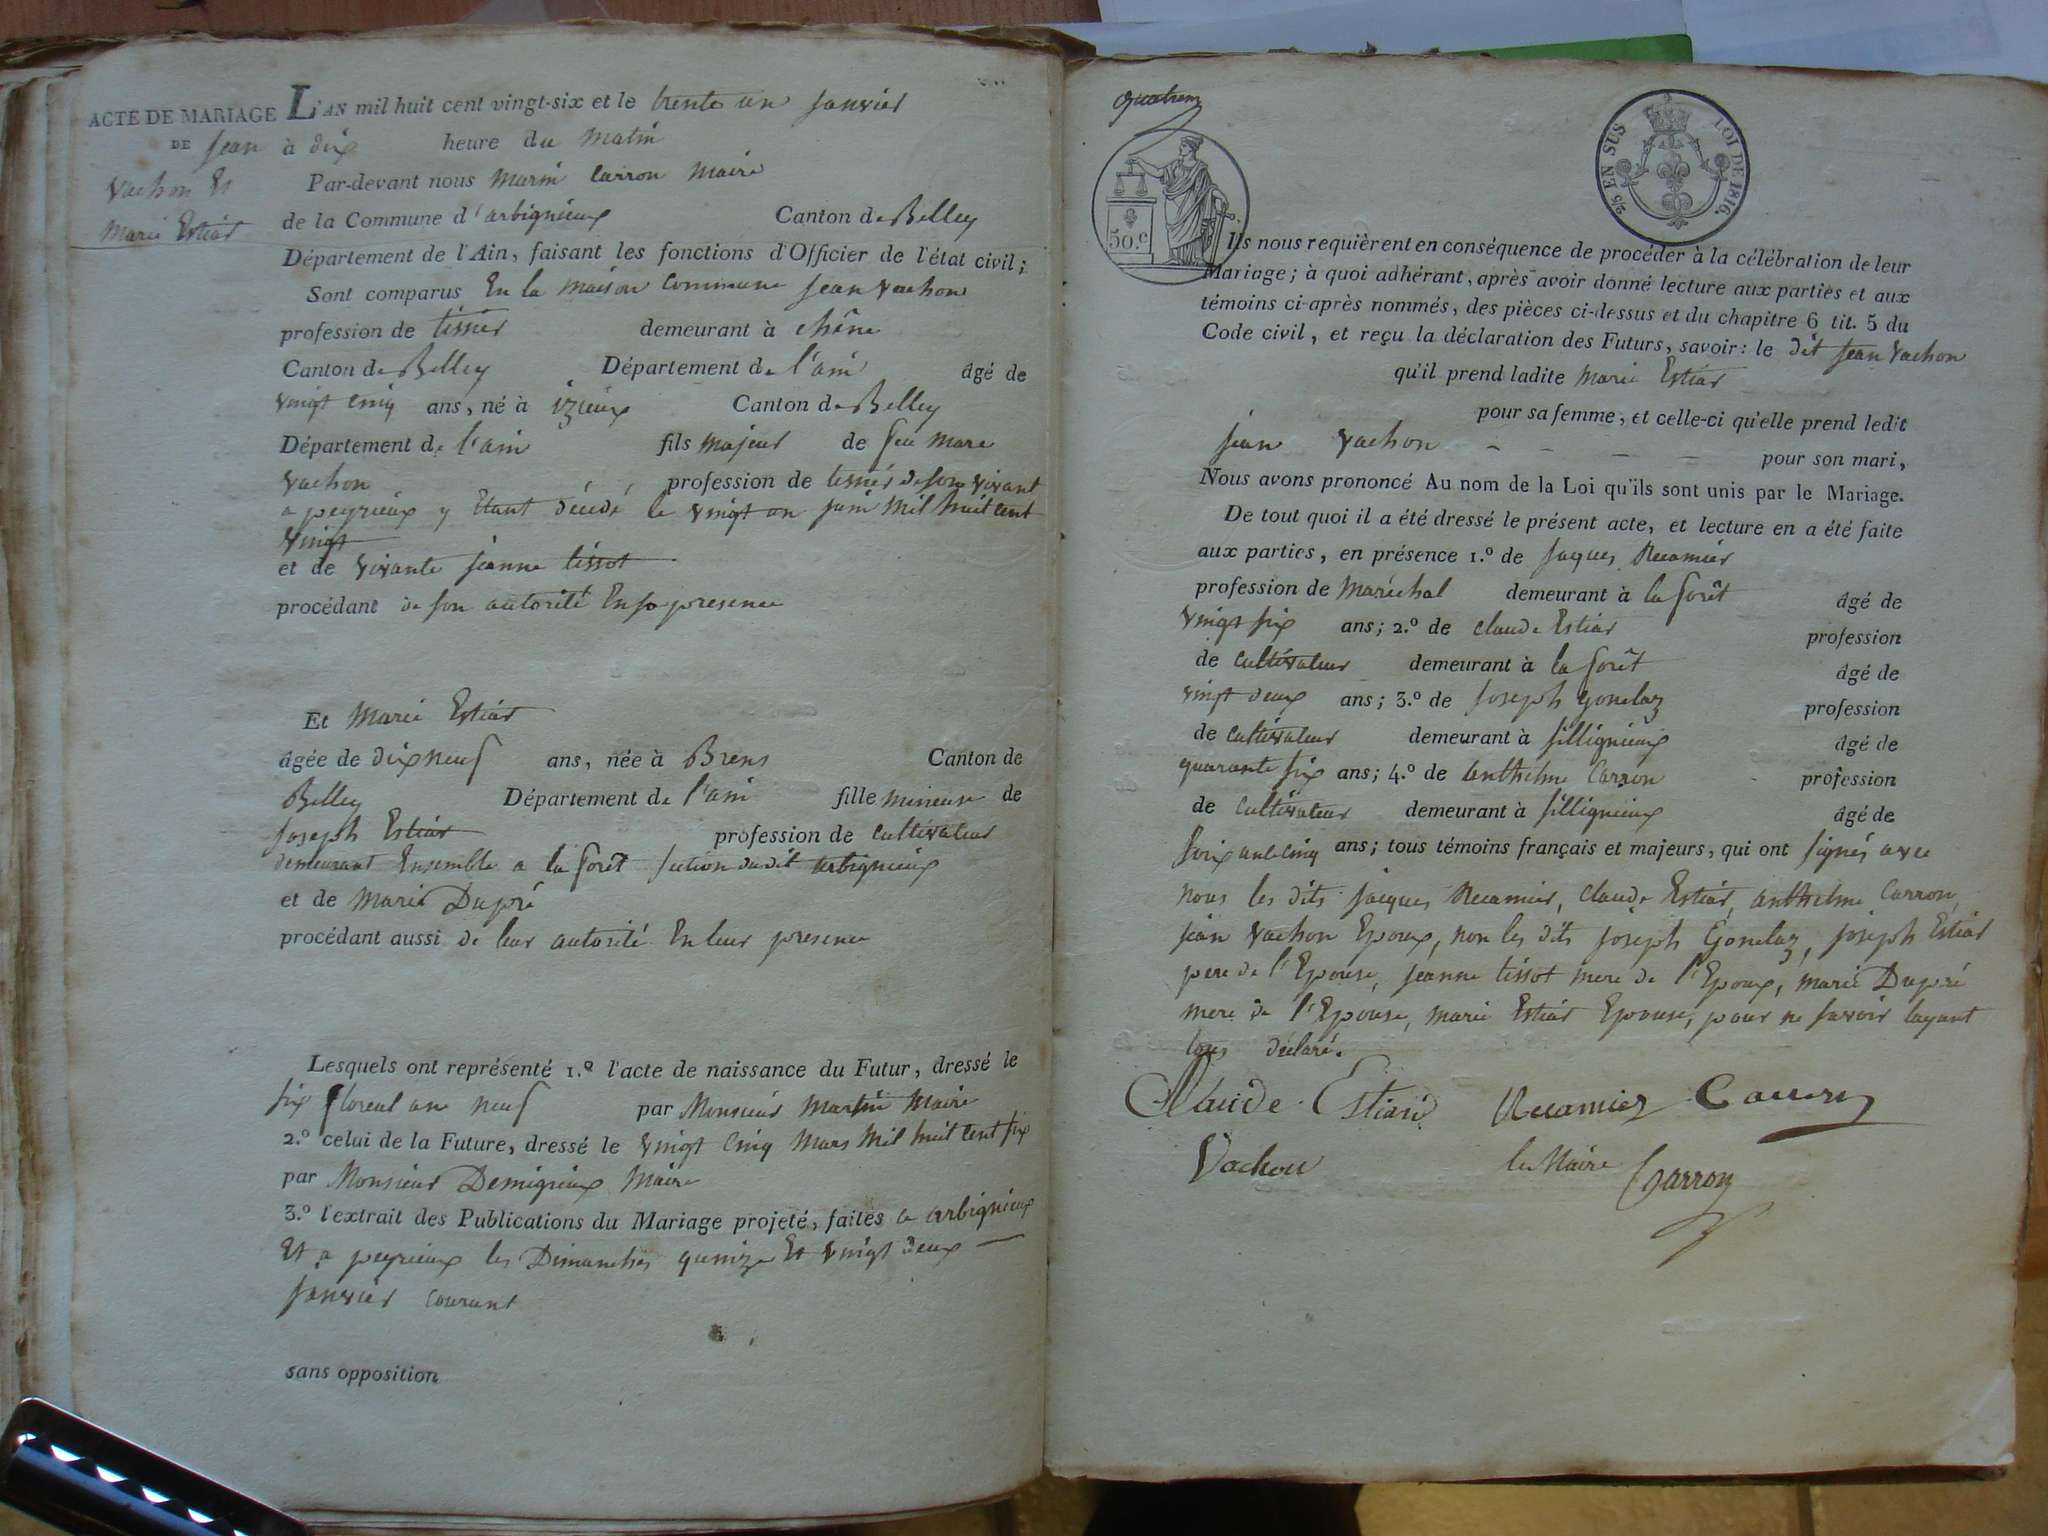 ACTE DE MARIAGE
DE jean
vachon Et
Marie Estiar
L'AN mil huit cent vingt-six et le trente un janvier
à dix heure du Matin
Par-devant nous Marin Carron Maire
de la Commune d'arbignieux Canton de Belley
Département de l'Ain, faisant les fonctions d'Officier de l'état civil;
Sont comparus En la maison Commune jean vachon
profession de tissier demeurant à chêne
Canton de Belley Département de l'ain âgé de
vingt cinq ans, né à izieux Canton de Belley
Département de l'ain fils majeur de feu marc
vachon profession de tissier de son vivant
a peyrieux y Etant décédé le vingt un juin Mil huit cent
vingt
et de vivante jeanne tissot
procédant de son autorité En sa presence
Et Marie Estiar
âgée de dix neuf ans, née à Brens Canton de
Belley Département de l'ain fille mineure de
joseph Estiar profession de cultivateur
demeurant Ensemble a la forêt section dudit arbignieux
et de Marie Dupré
procédant aussi de leur autorité En leur presence
Lesquels ont représenté 1.º l'acte de naissance du Futur, dressé le
six floreal an neuf par Monsieur Martin Maire
2.º celui de la Future, dressé le vingt Cinq Mars Mil huit Cent six
par Monsieur Demigrieux Maire
3.º l'extrait des Publications du Mariage projeté, faites a arbignieux
Et a peyrieux les Dimanches quinze Et vingt deux
janvier courant
sans opposition
50.c
2/5 EN SUS LOI DE 1816.
Ils nous requièrent en conséquence de procéder à la célébration de leur
Mariage; à quoi adhérant, après avoir donné lecture aux parties et aux
témoins ci-après nommés, des pièces ci-dessus et du chapitre 6 tit. 5 du
Code civil, et reçu la déclaration des Futurs, savoir: le dit jean vachon
qu'il prend ladite Marie Estiar
pour sa femme, et celle-ci qu'elle prend ledit
jean vachon pour son mari,
Nous avons prononcé Au nom de la Loi qu'ils sont unis par le Mariage.
De tout quoi il a été dressé le présent acte, et lecture en a été faite
aux parties, en présence 1.º de jaques Recamier
profession de Maréchal demeurant à la forêt âgé de
vingt six ans; 2.º de claude Estiar profession
de cultivateur demeurant à la forêt âgé de
vingt deux ans; 3.º de joseph Gonelaz profession
de cultivateur demeurant à sillignieux âgé de
quarante six ans; 4.º de anthelme Carron profession
de cultivateur demeurant à sillignieux âgé de
soixante cinq ans; tous témoins français et majeurs, qui ont signés avec
nous les dits jacques Recamier, claude Estiar, anthelme Carron,
jean vachon Epoux, non les dits joseph Gonelaz, joseph Estiar
pere de l'Epouse, jeanne tissot mere de l'Epoux, marie Dupré
mere de l'Epouse, marie Estiar Epouse, pour ne savoir layant
tous déclaré.
Claude Estiard Recamier Carron
Vachon le Maire Carron